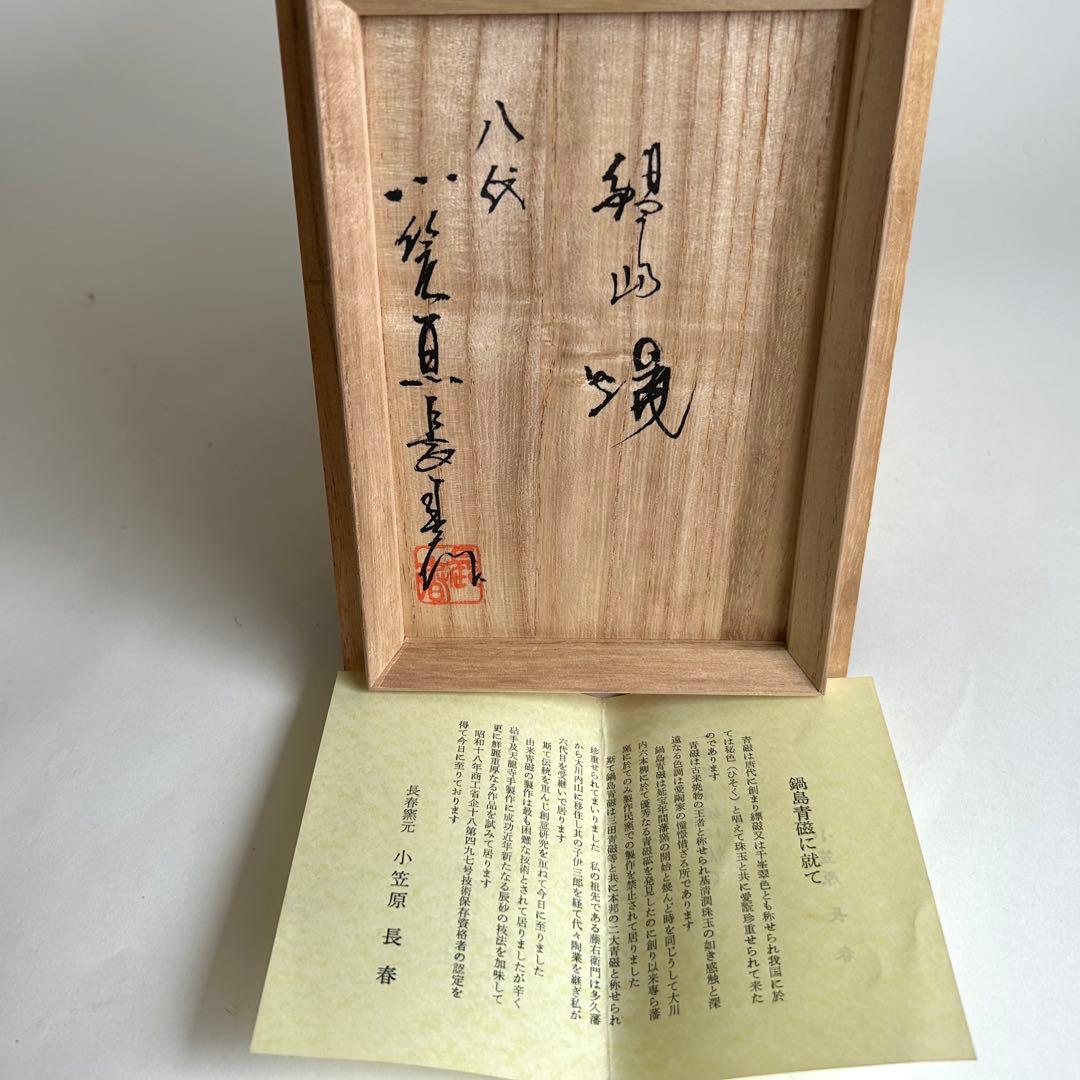 鍋島
八代
小笠原長春作
鍋島青磁に就て
青磁は唐代に創まり縹磁又は千峯翠色とも称せられ我国に於
ては秘色（ひそく）と唱えて珠玉と共に愛翫珍重せられて来た
のであります
青磁は古来焼物の王者と称せられ其清潤珠玉の如き感触と深
遠なる色調は愛陶家の憧憬惜ざる所であります
鍋島青磁は延宝年間藩窯の開始と殆んど時を同じうして大川
内六本柳に於て優秀なる青磁砿を発見したのに創り以来専ら藩
窯に於てのみ製作民窯での製作を禁止されて居りました
斯て鍋島青磁は三田青磁等と共に本邦の二大青磁と称せられ
珍重せられてまいりました　私の祖先である藤右衛門は多久藩
から大川内山に移住し其の子伊三郎を経て代々陶業を継ぎ私が
六代目を受継いで居ります
斯て伝統を重んじ創意研究を重ねて今日に至りました
由来青磁の製作は最も困難な技術とされて居りましたが辛く
砧手及天龍寺手製作に成功近年新たなる辰砂の技法を加味して
更に鮮麗重厚なる作品を試みて居ります
昭和十八年商工省企十八第四九七号技術保存資格者の認定を
得て今日に至りております
長春窯元　小笠原長春